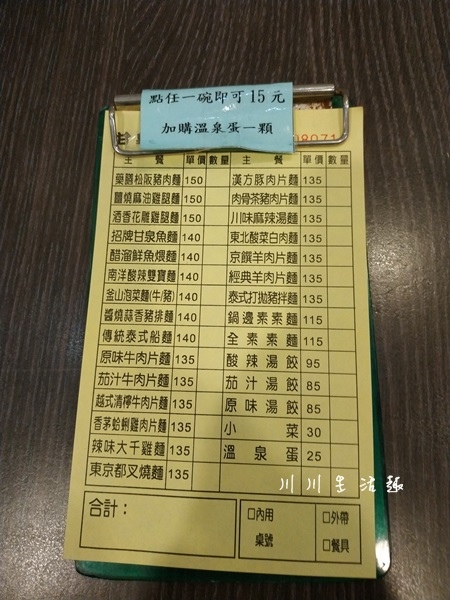 點任一碗即可15元
加購溫泉蛋一顆
8071
主 餐 單價 數量 主 餐 單價 數量
藥膳松阪豬肉麵 150 漢方豚肉片麵 135
薑燒麻油雞腿麵 150 肉骨茶豬肉片麵 135
酒香花雕雞腿麵 150 川味麻辣湯麵 135
招牌甘泉魚麵 140 東北酸菜白肉麵 135
醋溜鮮魚煨麵 140 京饌羊肉片麵 135
南洋酸辣雙寶麵 140 經典羊肉片麵 135
釜山泡菜麵(牛/豬) 140 泰式打拋豬拌麵 135
醬燒蒜香豬排麵 140 鍋邊素素麵 115
傳統泰式船麵 140 全素素麵 115
原味牛肉片麵 135 酸辣湯餃 95
茄汁牛肉片麵 135 茄汁湯餃 85
越式清檸牛肉片麵 135 原味湯餃 85
香茅蛤蜊雞肉片麵 135 小菜 30
辣味大千雞麵 135 溫泉蛋 25
東京都叉燒麵 135
川川生活趣
合計：
□內用 □外帶
桌號 □餐具